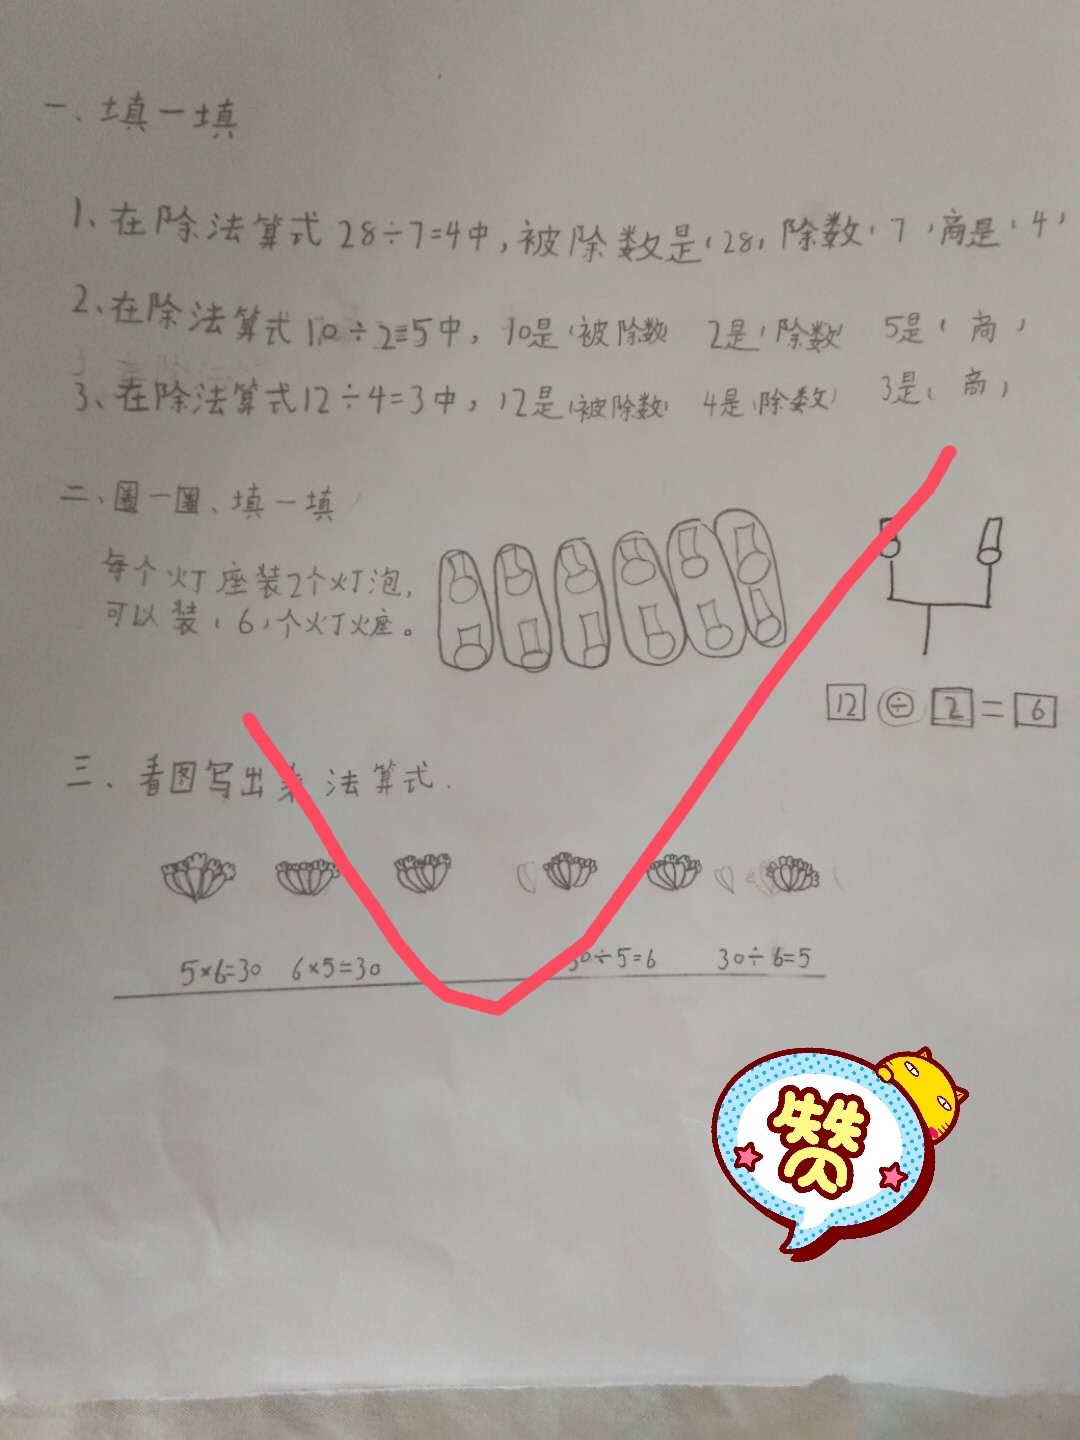 一、填一填
1、在除法算式28÷7=4中,被除数是(28)除数(7)商是(4)
2、在除法算式10÷2=5中,10是(被除数) 2是(除数) 5是(商)
3、在除法算式12÷4=3中,12是(被除数) 4是(除数) 3是(商)
二、圈一圈、填一填
每个火丁座装2个火丁泡,
可以装(6)个火丁火座。
12÷2=6
三、看图写出乘法算式.
5×6=30 6×5=30 30÷5=6 30÷6=5
赞